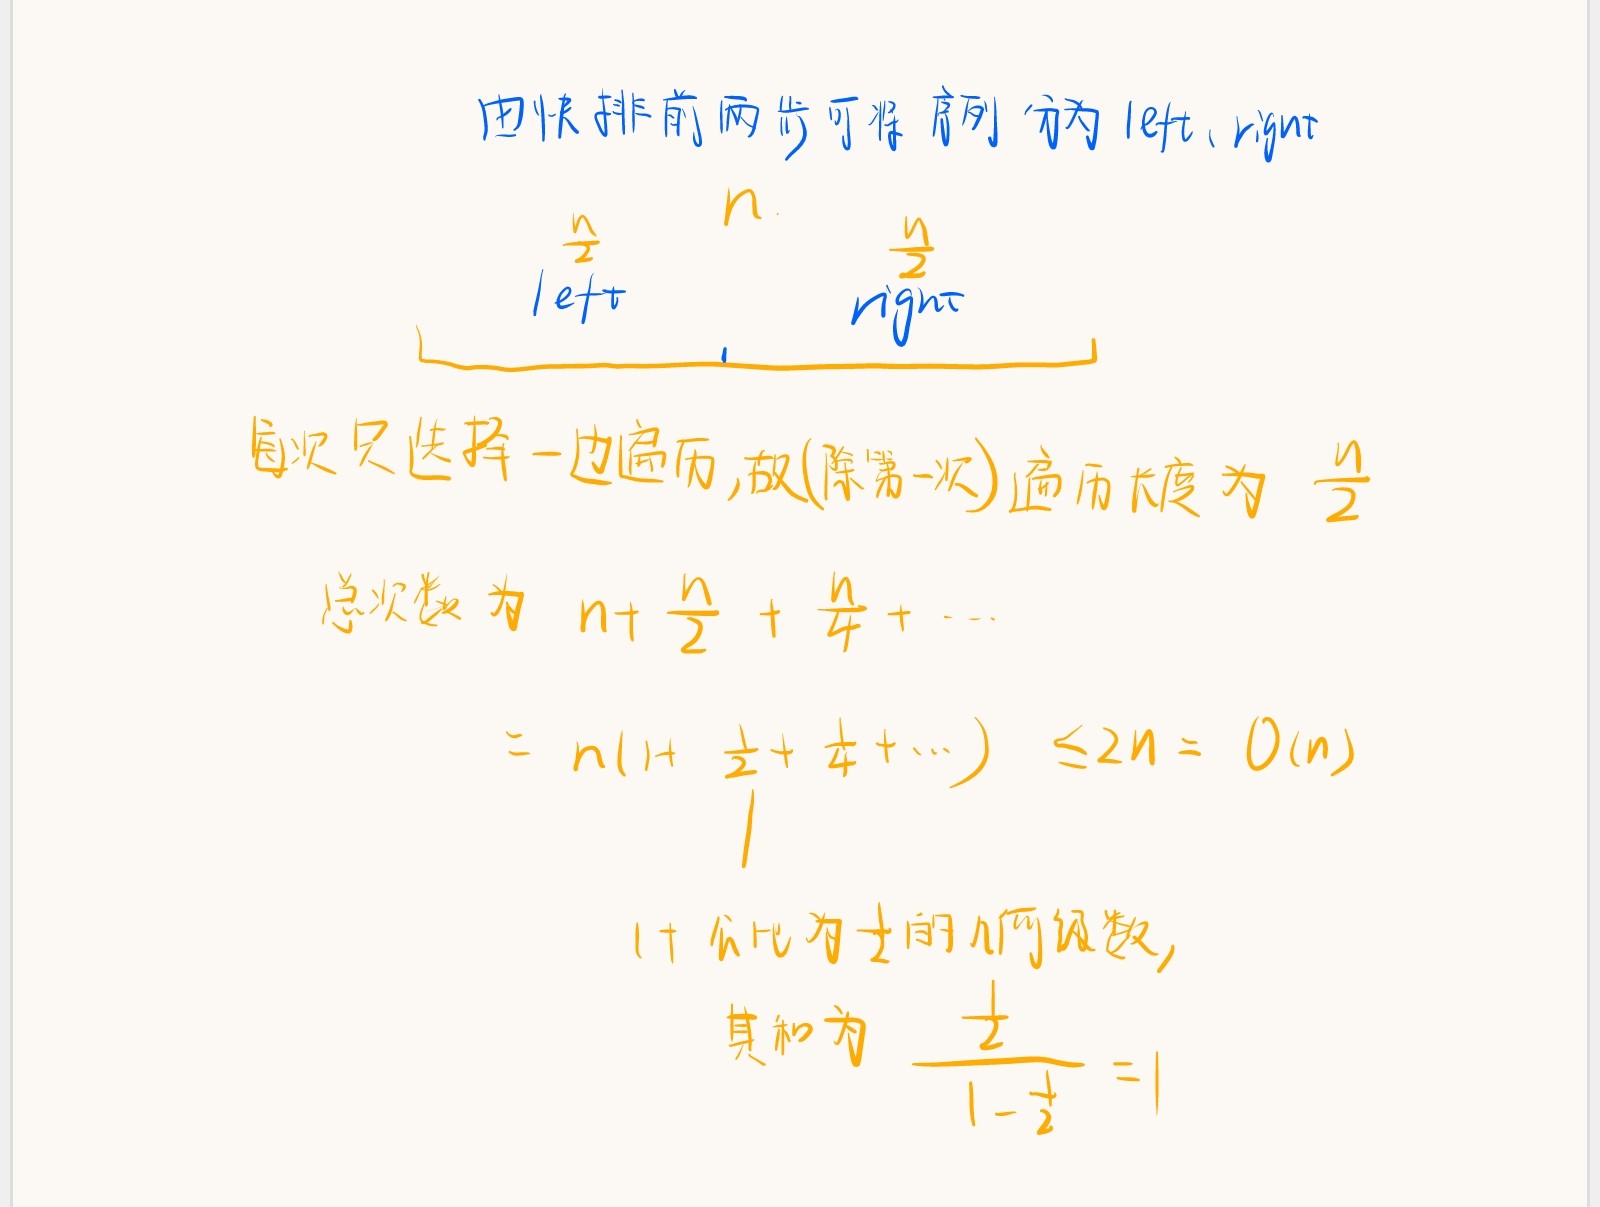 由快排前两步可将序列分为left、right
n
n/2 n/2
left right
每次只选择一边遍历,故(除第一次)遍历长度为 n/2
总次数为 n+ n/2 + n/4 + ...
= n(1+ 1/2 + 1/4 + ...) ≤2n = O(n)
1+ 公比为1/2的几何级数,
其和为 (1/2)/(1-1/2) =1